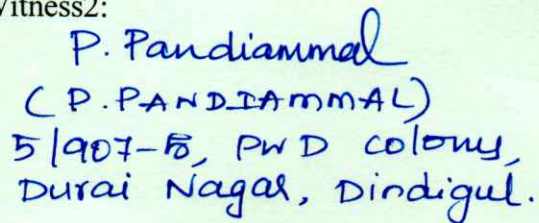 Witness2:
P. Pandiammal
(P. PANDIAMMAL)
5/907-B, PWD colony,
Durai Nagar, Dindigul.